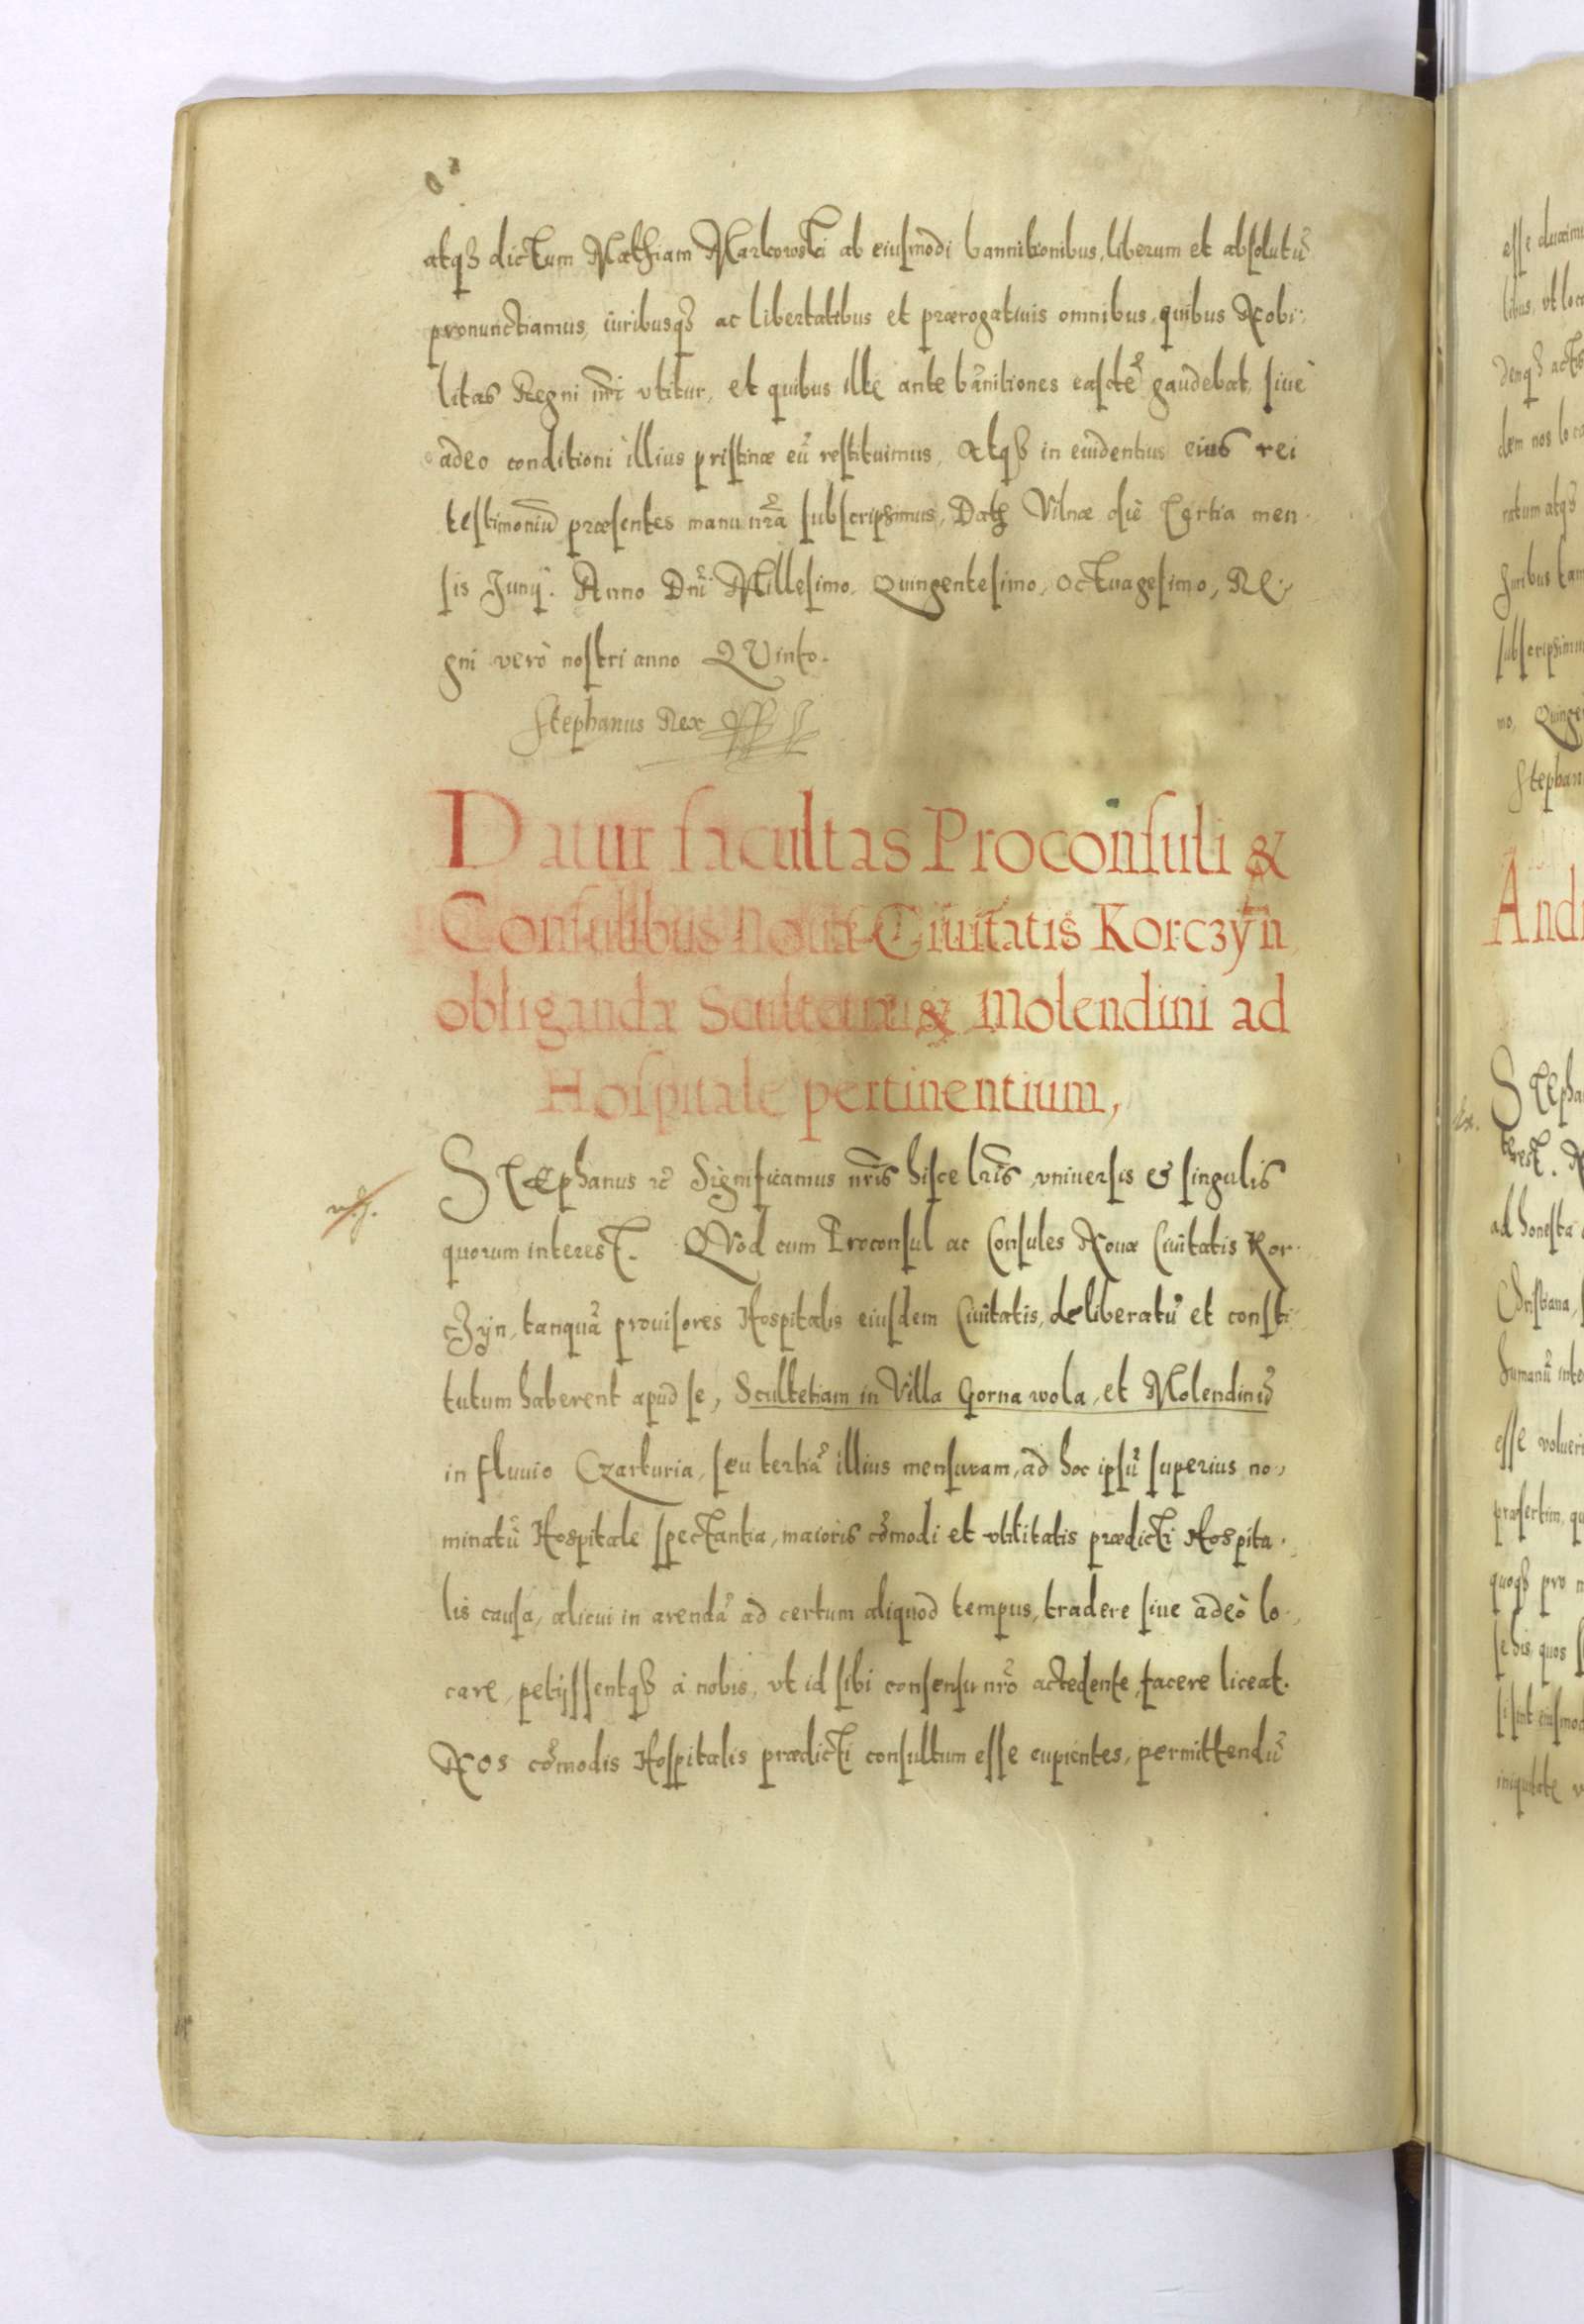 atqȝ dictum Mathiam Markowski ab eiusmodi bannitionibus, liberum et absolutũ
pronunctiamus, iuribusqȝ ac libertatibus et prærogatiuis omnibus, quibus Nobi:
litas Regni nr̃i vtitur, et quibus ille ante bãnitiones easdẽ gaudebat, siue
adeo conditioni illius pristinæ eũ restituimus, Atqȝ in euidentius eius rei
testimoniũ præsentes manu nr̃a subscripsimus, Datȝ Vilnæ die Tertia men.
sis Junÿ. Anno Dnĩ Millesimo, Quingentesimo, Octuagesimo, Re:
gni verò nostri anno QVinto.
Stephanus Rex
Datur facultas Proconsuli &
Consulibus Nouæ Ciuitatis Korczÿn
obligandæ Scultetiæ & Molendini ad
Hospitale pertinentium,
STEphanus ꝛc̃ Significamus nr̃is hisce lr̃is, vniuersis & singulis
quorum interest. QVod cum Proconsul ac Consules Nouæ Ciuitatis Kor:
czÿn, tanquã prouisores Hospitalis eiusdem Ciuitatis, deliberatũ et consti
tutum haberent apud se, Scultetiam in Villa Gorna wola, et Molendinũ
in fluuio Czarturia, seu tertiã illius mensuram, ad hoc ipsũ superius no,,
minatũ Hospitale spectantia, maioris cõmodi et vtilitatis prædicti Hospita.
lis causa, alicui in arendã ad certum aliquod tempus, tradere siue adeò lo.,
care, petÿssentqȝ à nobis, vt id sibi consensu nr̃o accedente, facere liceat.
Nos cõmodis Hospitalis prædicti consultum esse cupientes, permittendũ